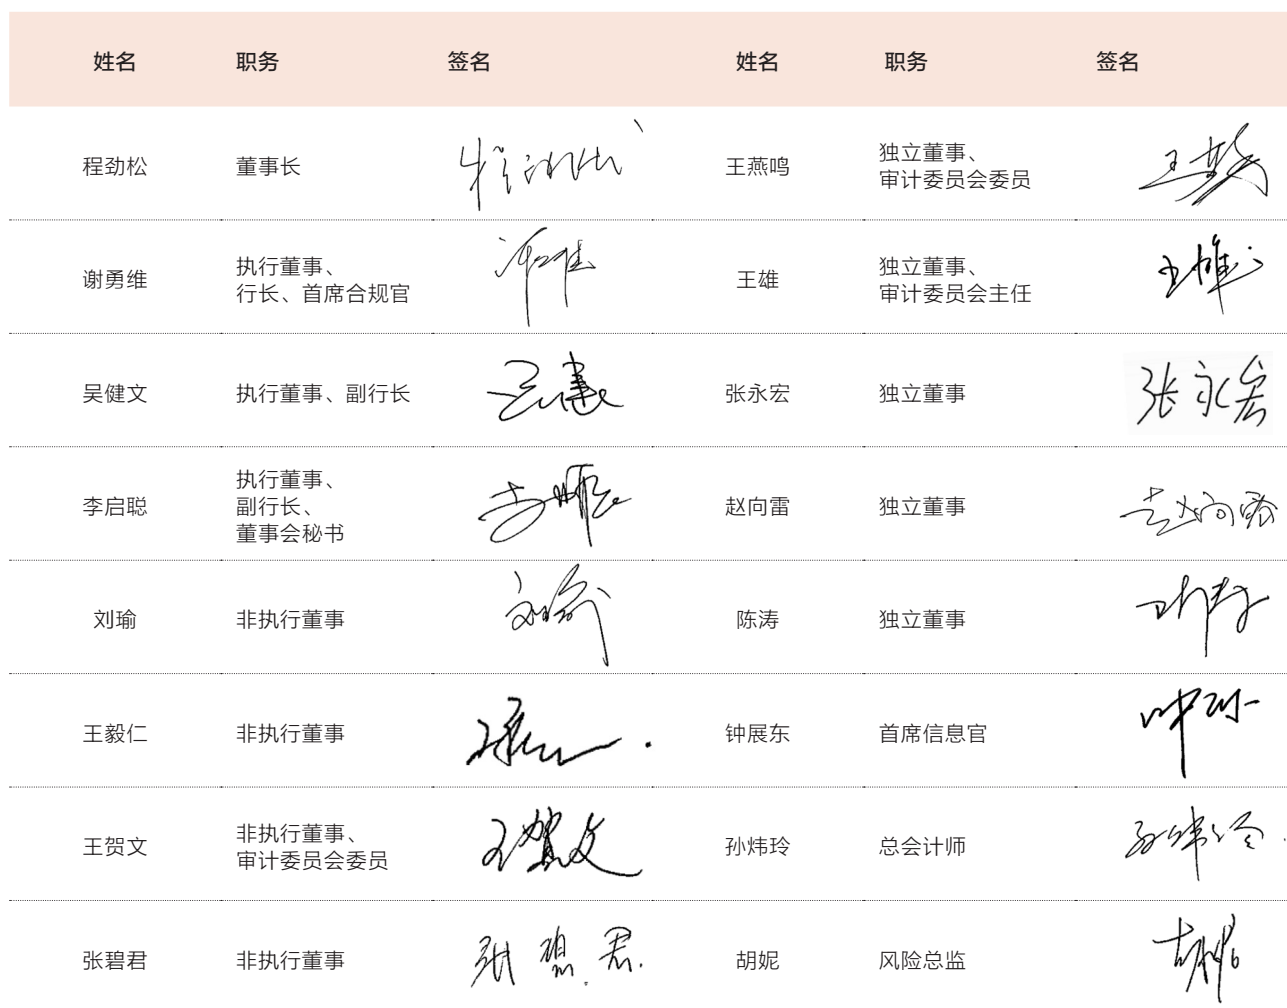 姓名 职务 签名 姓名 职务 签名
程劲松 董事长 王燕鸣 独立董事、
审计委员会委员
谢勇维 执行董事、
行长、首席合规官 王雄 独立董事、
审计委员会主任
吴健文 执行董事、副行长 张永宏 独立董事 张永宏
李启聪 执行董事、
副行长、
董事会秘书 赵向雷 独立董事
刘瑜 非执行董事 陈涛 独立董事
王毅仁 非执行董事 钟展东 首席信息官
王贺文 非执行董事、
审计委员会委员 王贺文 孙炜玲 总会计师
张碧君 非执行董事 张碧君 胡妮 风险总监